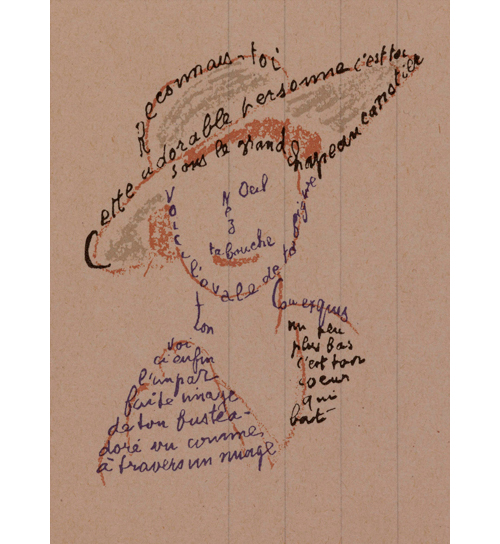 Reconnais-toi
Cette adorable personne c'est toi
sous le grand chapeau canotier
Oeil
Nez
ta bouche
Voici l'ovale de ta figure
ton
Cou exquis
Voi
ci enfin
l'impar
faite image
de ton buste a-
doré vu comme
à travers un nuage
un peu
plus bas
c'est ton
coeur
qui
bat